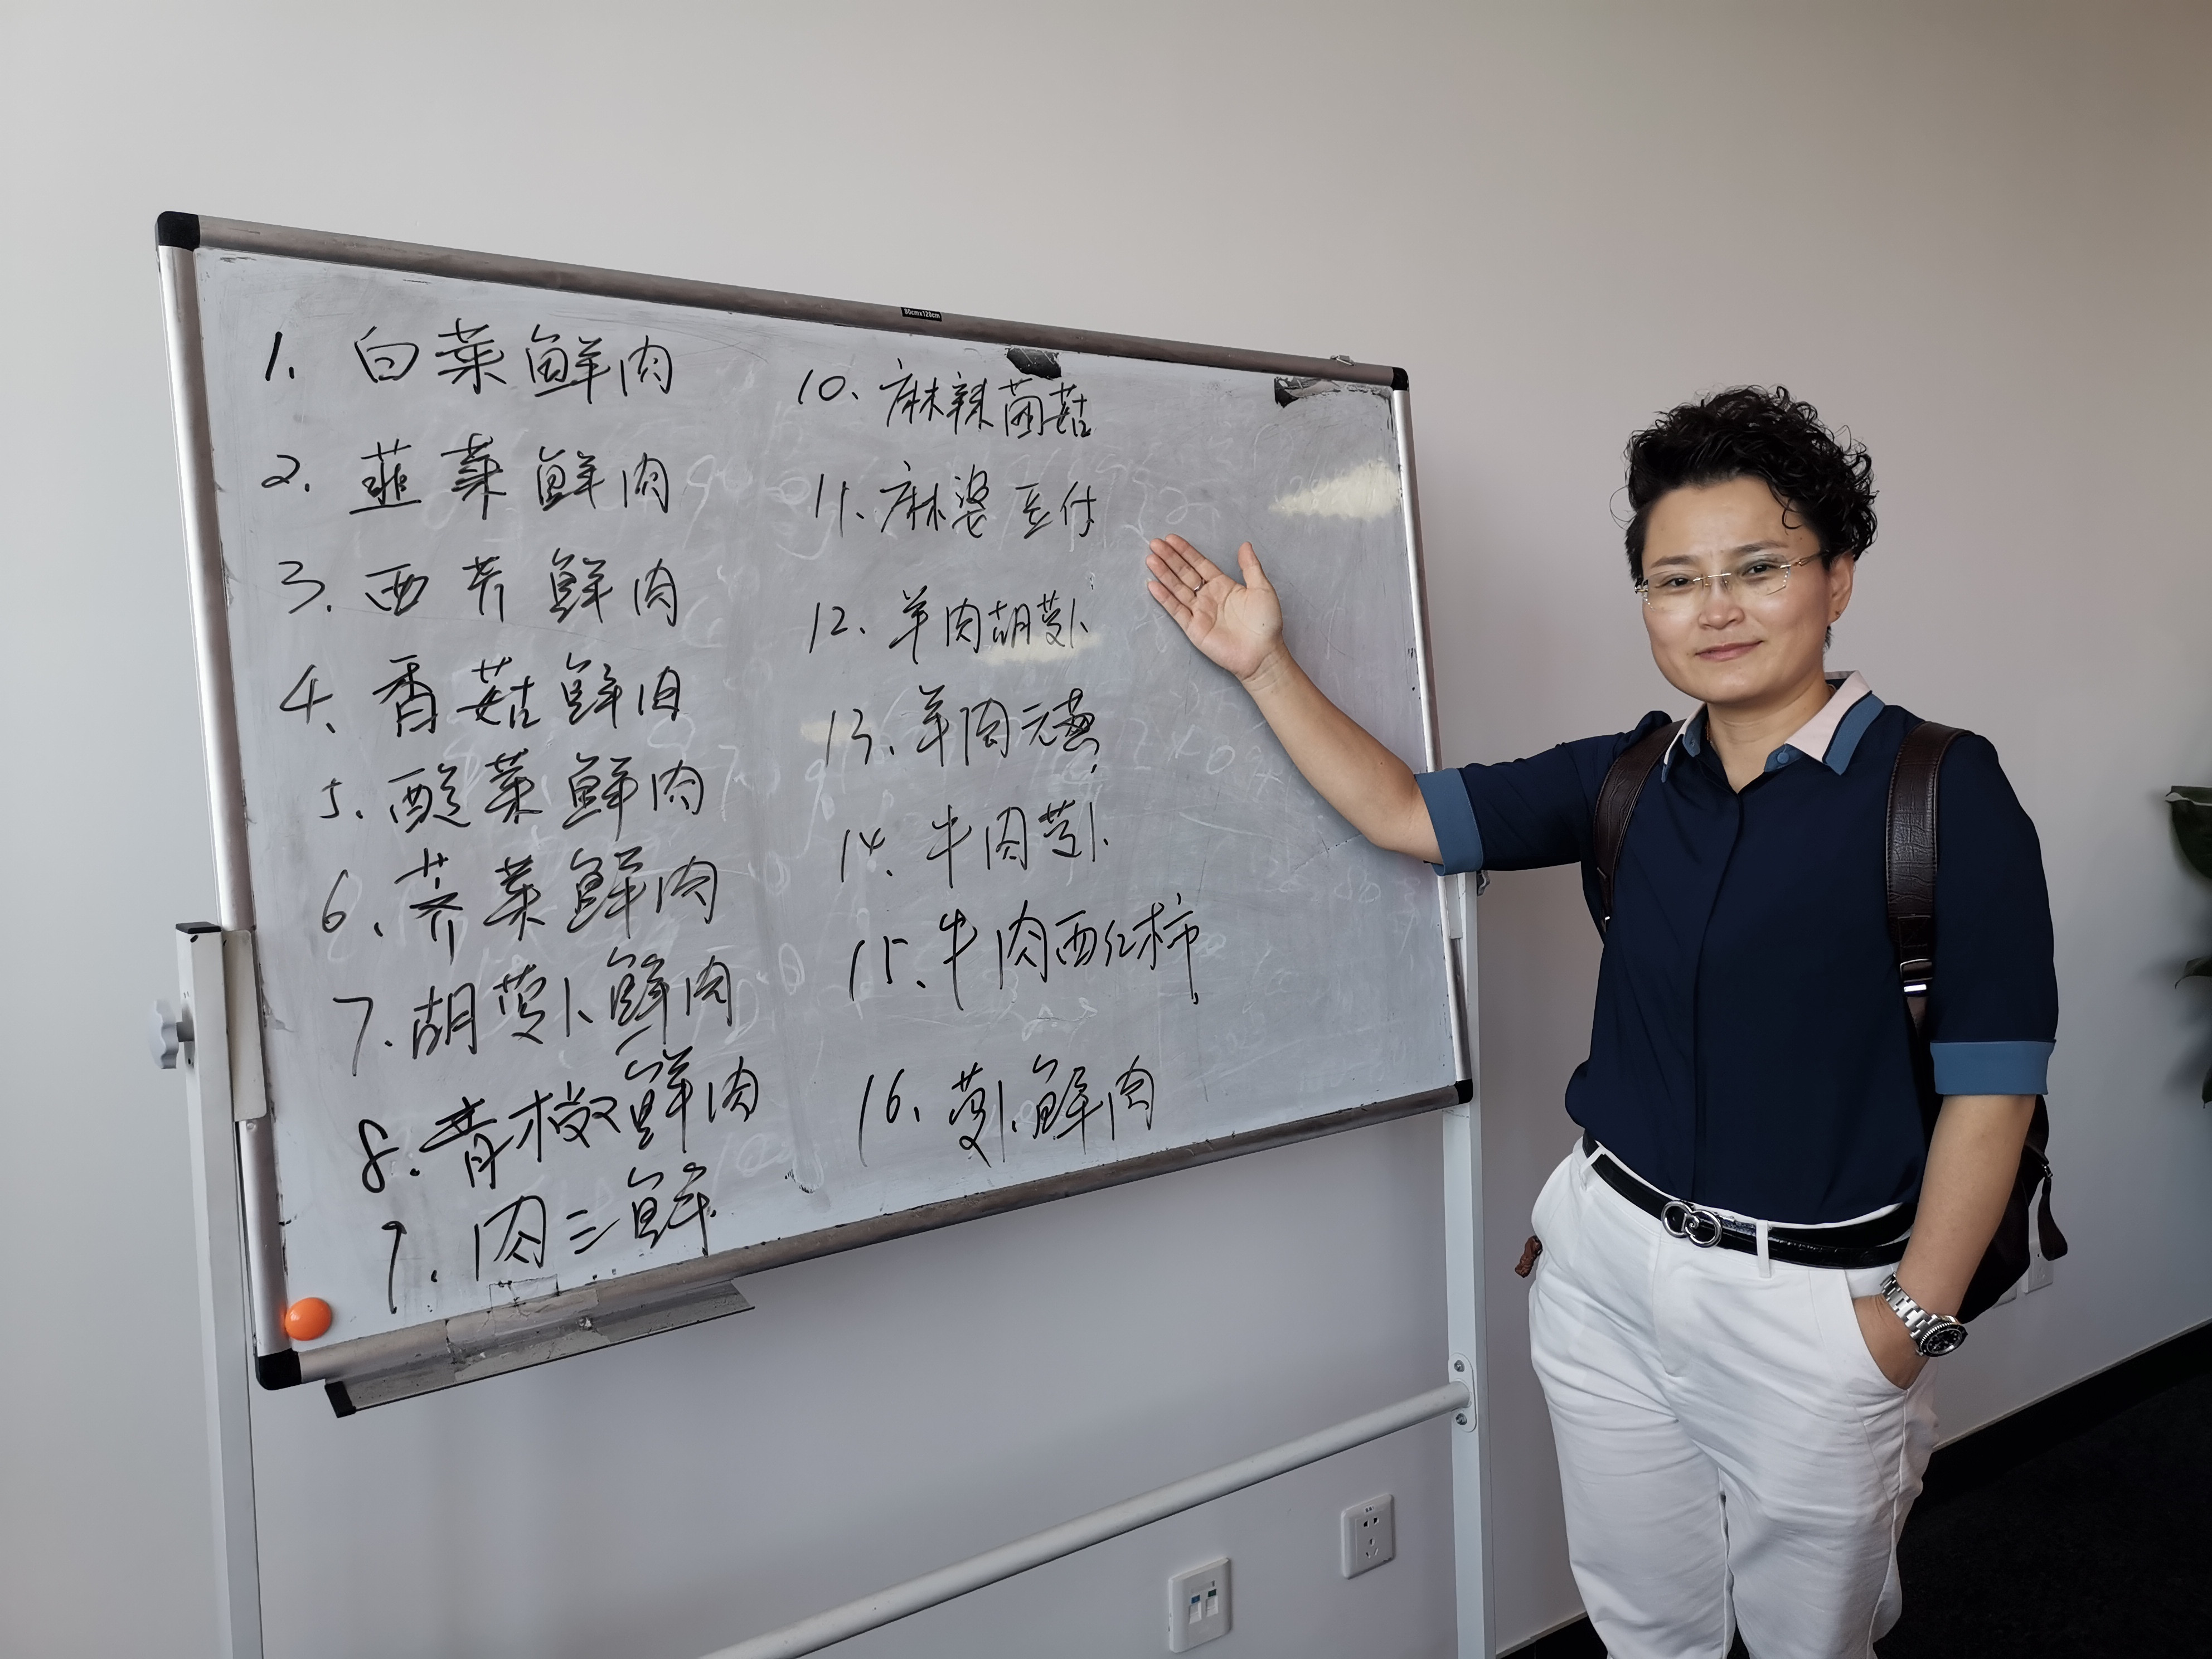 1. 白菜鲜肉
2. 韭菜鲜肉
3. 西芹鲜肉
4、香菇鲜肉
5. 酸菜鲜肉
6. 荠菜鲜肉
7. 胡萝卜鲜肉
8. 青椒鲜肉
9. 肉三鲜
10、麻辣菌菇
11、麻婆豆付
12、羊肉胡萝卜
13、羊肉元葱
14、牛肉萝卜
15、牛肉西红柿
16、萝卜鲜肉
80cmx120cm